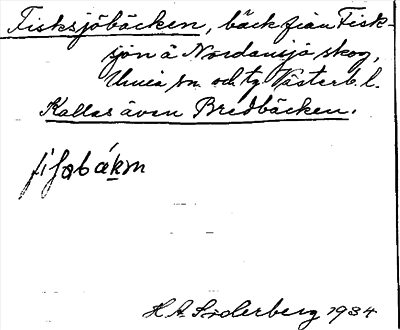 Fisksjöbäcken, bäck från Fisk-
sjön å Nordansjö skog,
Umeå sn. och tg. Västerb. l.
Kallas även Bredbäcken.
H. A. Söderberg 1934